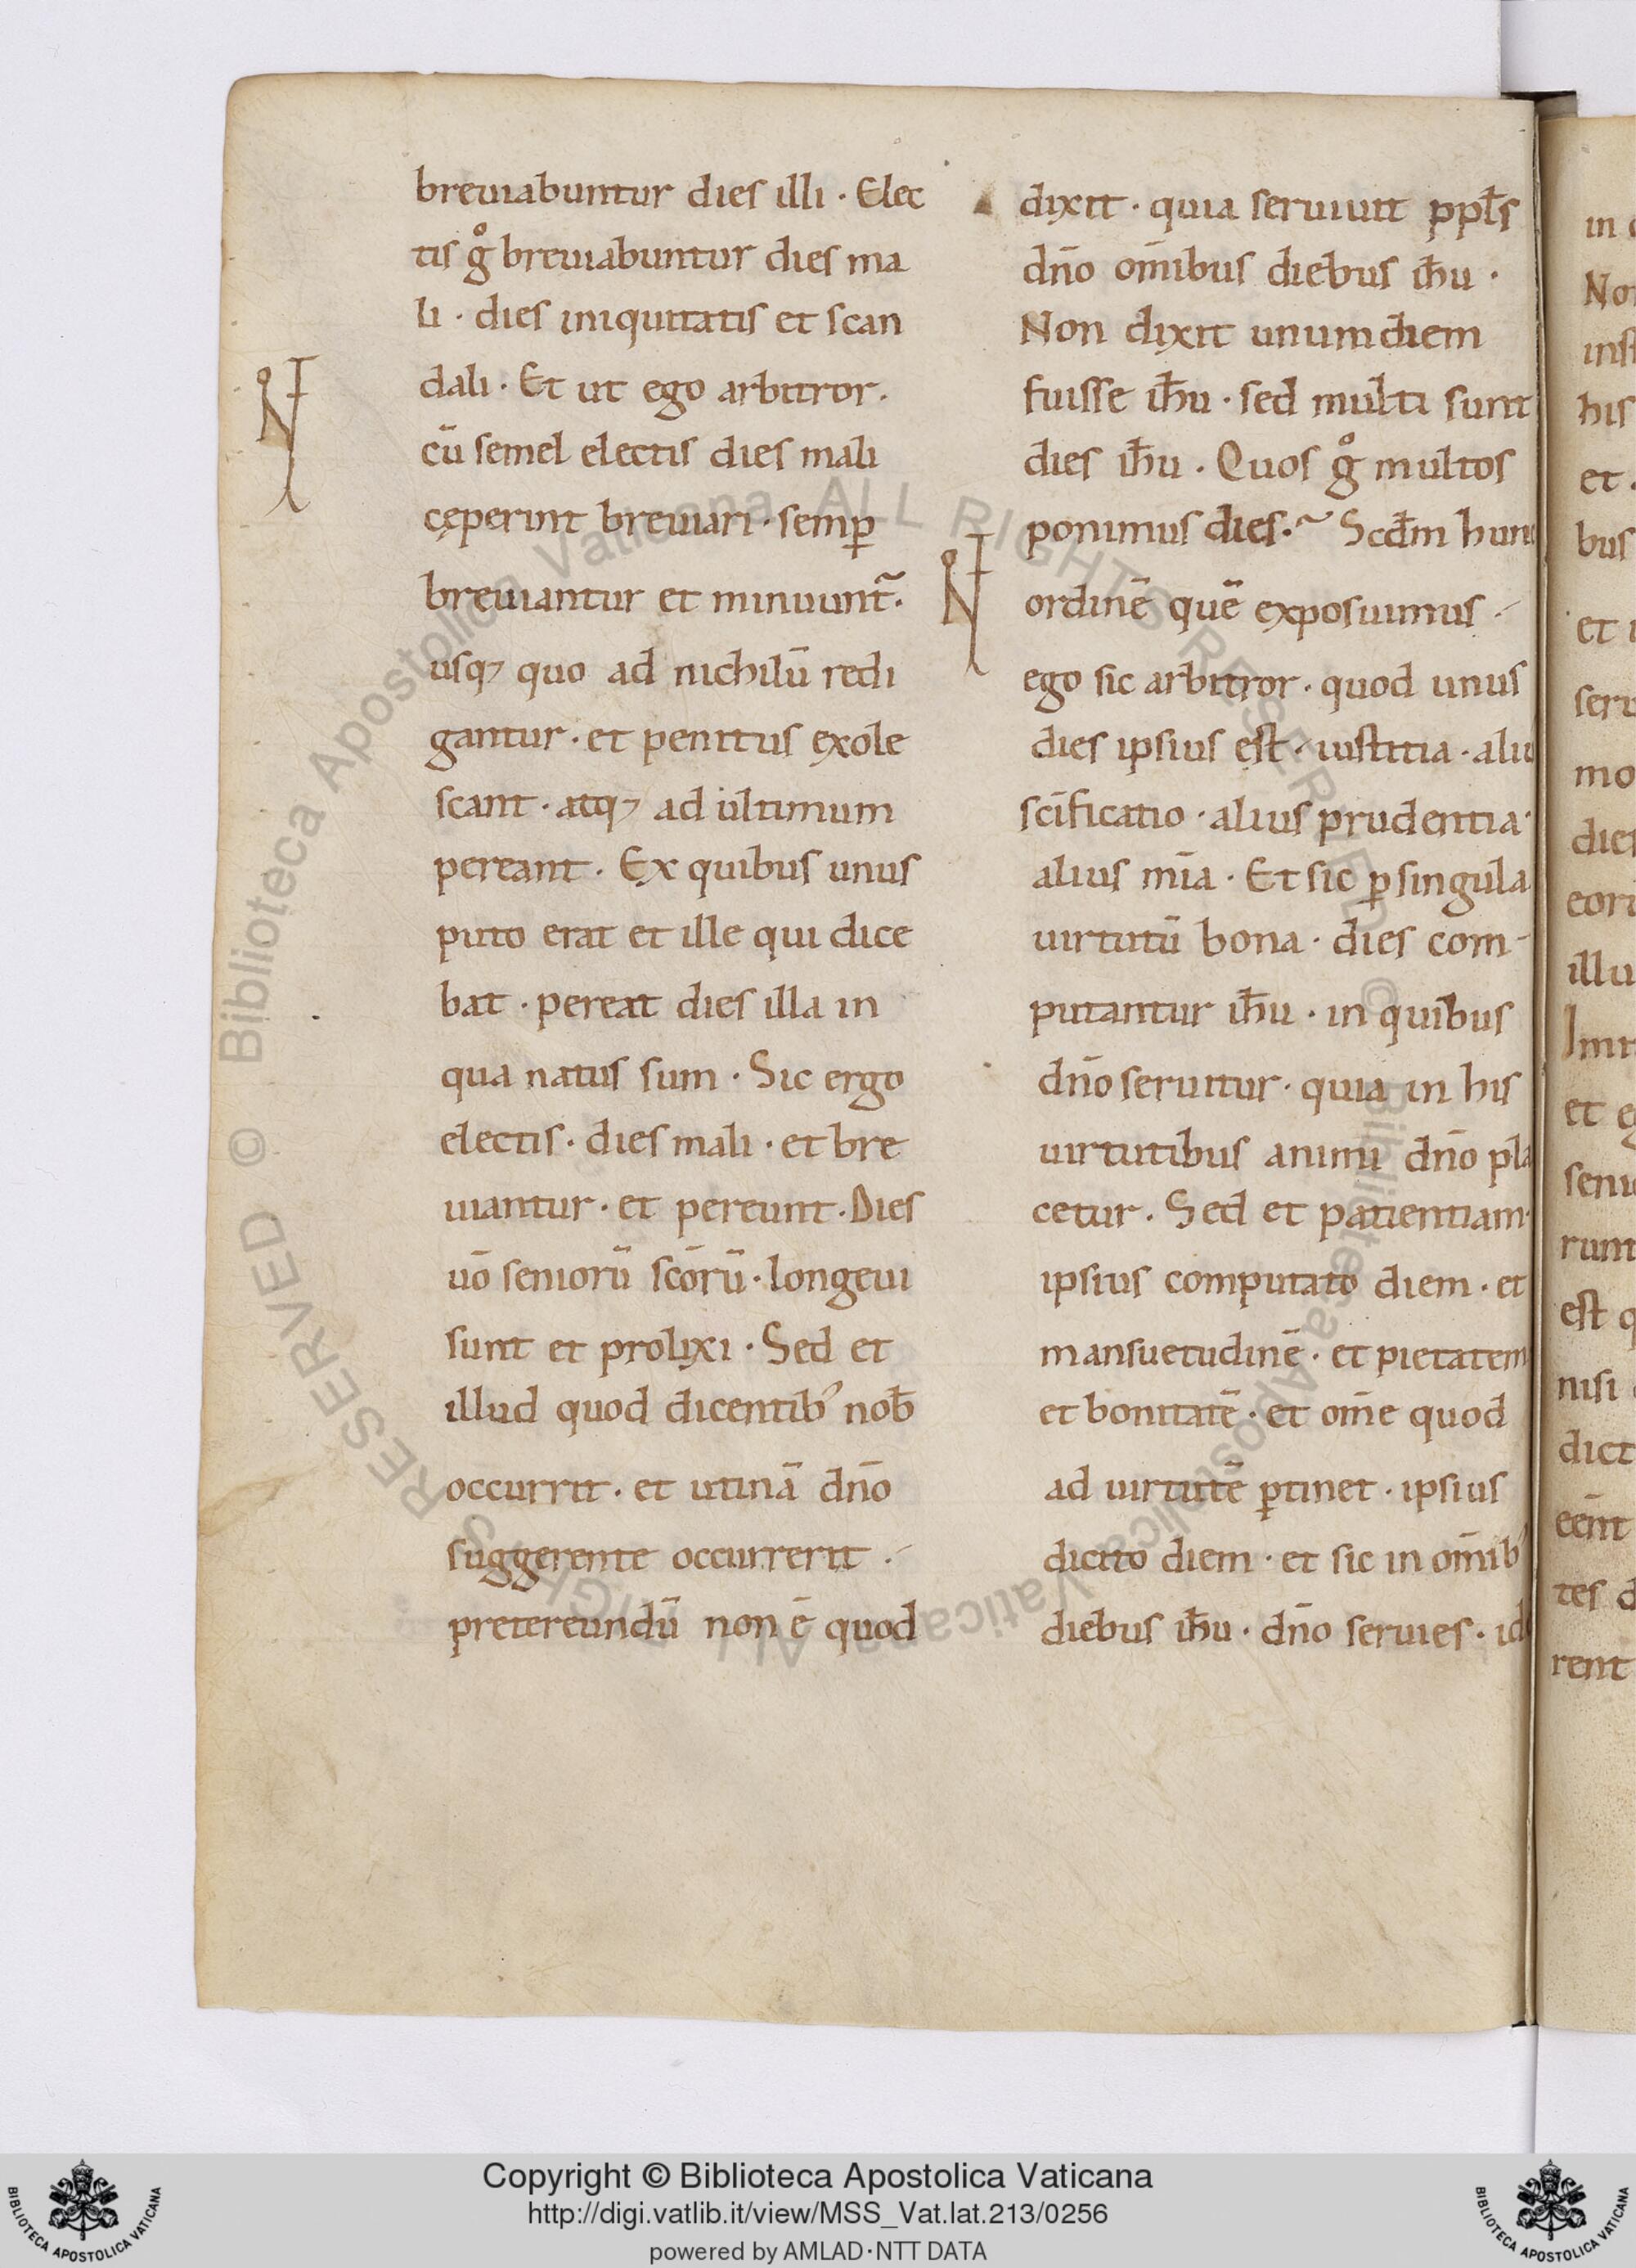 breuiabuntur dies illi · Elec
tis g̊ breuiabuntur dies ma
li · dies iniquitatis et scan
dali · Et ut ego arbitror ·
cū semel electis dies mali
cęperint breuiari · semꝑ
breuiantur et minuunt᷑ ·
usqꝫ quo ad nichilū redi
gantur · et penitus exole
scant · atqꝫ ad ultimum
pereant · Ex quibus unus
puto erat et ille qui dice
bat · pereat dies illa in
qua natus sum · Sic ergo
electis · dies mali · et bre
uiantur · et pereunt · Dies
uō seniorū scōrū · longeui
sunt et prolixi · Sed et
illud quod dicentibꝰ nob̄
occurrit · et utinā dn̄o
suggerente occurrerit ·
pretereundū non ē quod
dixit · quia seruiuit ppl̄s
dn̄o om̄ibus diebus ih̄u ·
Non dixit unum diem
fuisse ih̄u · sed multi sunt
dies ih̄u · Quos g̊ multos
ponimus dies · Scd̄m hunc
ordinē quē exposuimus ·
ego sic arbitror · quod unus
dies ipsius est · iustitia · aliu
sc̄ificatio · alius prudentia ·
alius mīa · Et sic ꝑ singula
uirtutū bona · dies com-
putantur ih̄u · in quibus
dn̄o seruitur · quia in his
uirtutibus animi dn̄o pla
cetur · Sed et patientiam
ipsius computato diem · et
mansuetudinē · et pietatem
et bonitatē · et om̄e quod
ad uirtutē ꝑtinet · ipsius
dicito diem · et sic in om̄ibꝰ
diebus ih̄u · dn̄o seruies · id
Non
his
et ·
bus
et
mo
illu
et
est q
nisi
dict
tes d
rent
© Biblioteca Apostolica Vaticana ALL RIGHTS RESERVED
© Biblioteca Apostolica Vaticana ALL RIGHTS RESERVED
Copyright © Biblioteca Apostolica Vaticana
http://digi.vatlib.it/view/MSS_Vat.lat.213/0256
powered by AMLAD·NTT DATA
BIBLIOTECA APOSTOLICA VATICANA
BIBLIOTECA APOSTOLICA VATICANA